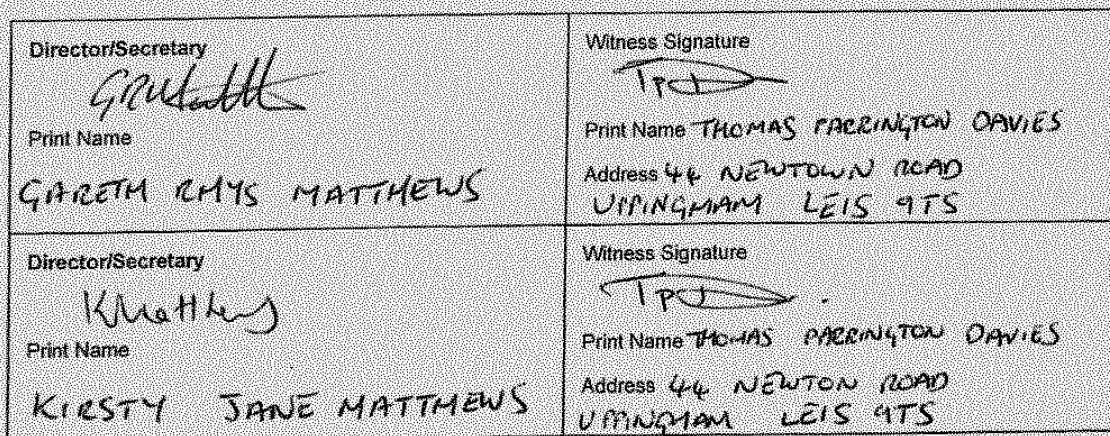 Director/Secretary
GRMatth
Print Name
GARETH RHYS MATTHEWS
Witness Signature
TPD
Print Name THOMAS PARRINGTON DAVIES
Address 44 NEWTOWN ROAD
UPPINGHAM LE15 9TS
Director/Secretary
KMatthews
Print Name
KIRSTY JANE MATTHEWS
Witness Signature
TPD
Print Name THOMAS PARRINGTON DAVIES
Address 44 NEWTON ROAD
UPPINGHAM LE15 9TS